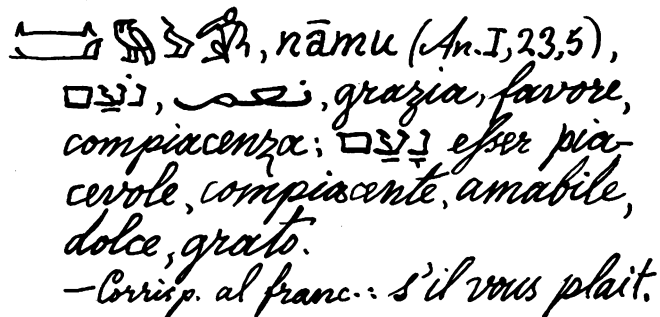 , nāmu (An. I, 23, 5),
נֹעַם, نعم, grazia, favore,
compiacenza; נָעַם eſser pia-
cevole, compiacente, amabile,
dolce, grato.
— Corrisp. al franc.: s'il vous plait.